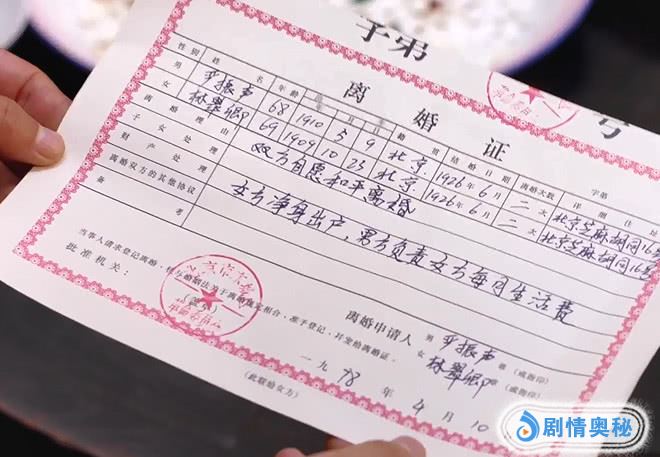 字第 号
离婚证
性别 姓名 年龄 籍贯 结婚日期 离婚次数 详细住址
男 严振声 68 1910 5 9 北京 1926.6. 二次 北京芝麻胡同16号
女 林翠卿 69 1909 10 23 北京 1926.6. 二次 北京芝麻胡同16号
离婚理由 双方自愿和平离婚
子女处理
财产处理 女方净身出户,男方负责女方每月生活费
离婚双方的其他协议
备考
当事人请求登记离婚,
相合,准予登记,并发给离婚证。
批准机关:
离婚申请人 男 严振声 (或指印)
女 林翠卿 (或指印)
一九78年4月10
(此联给女方)
剧情奥秘